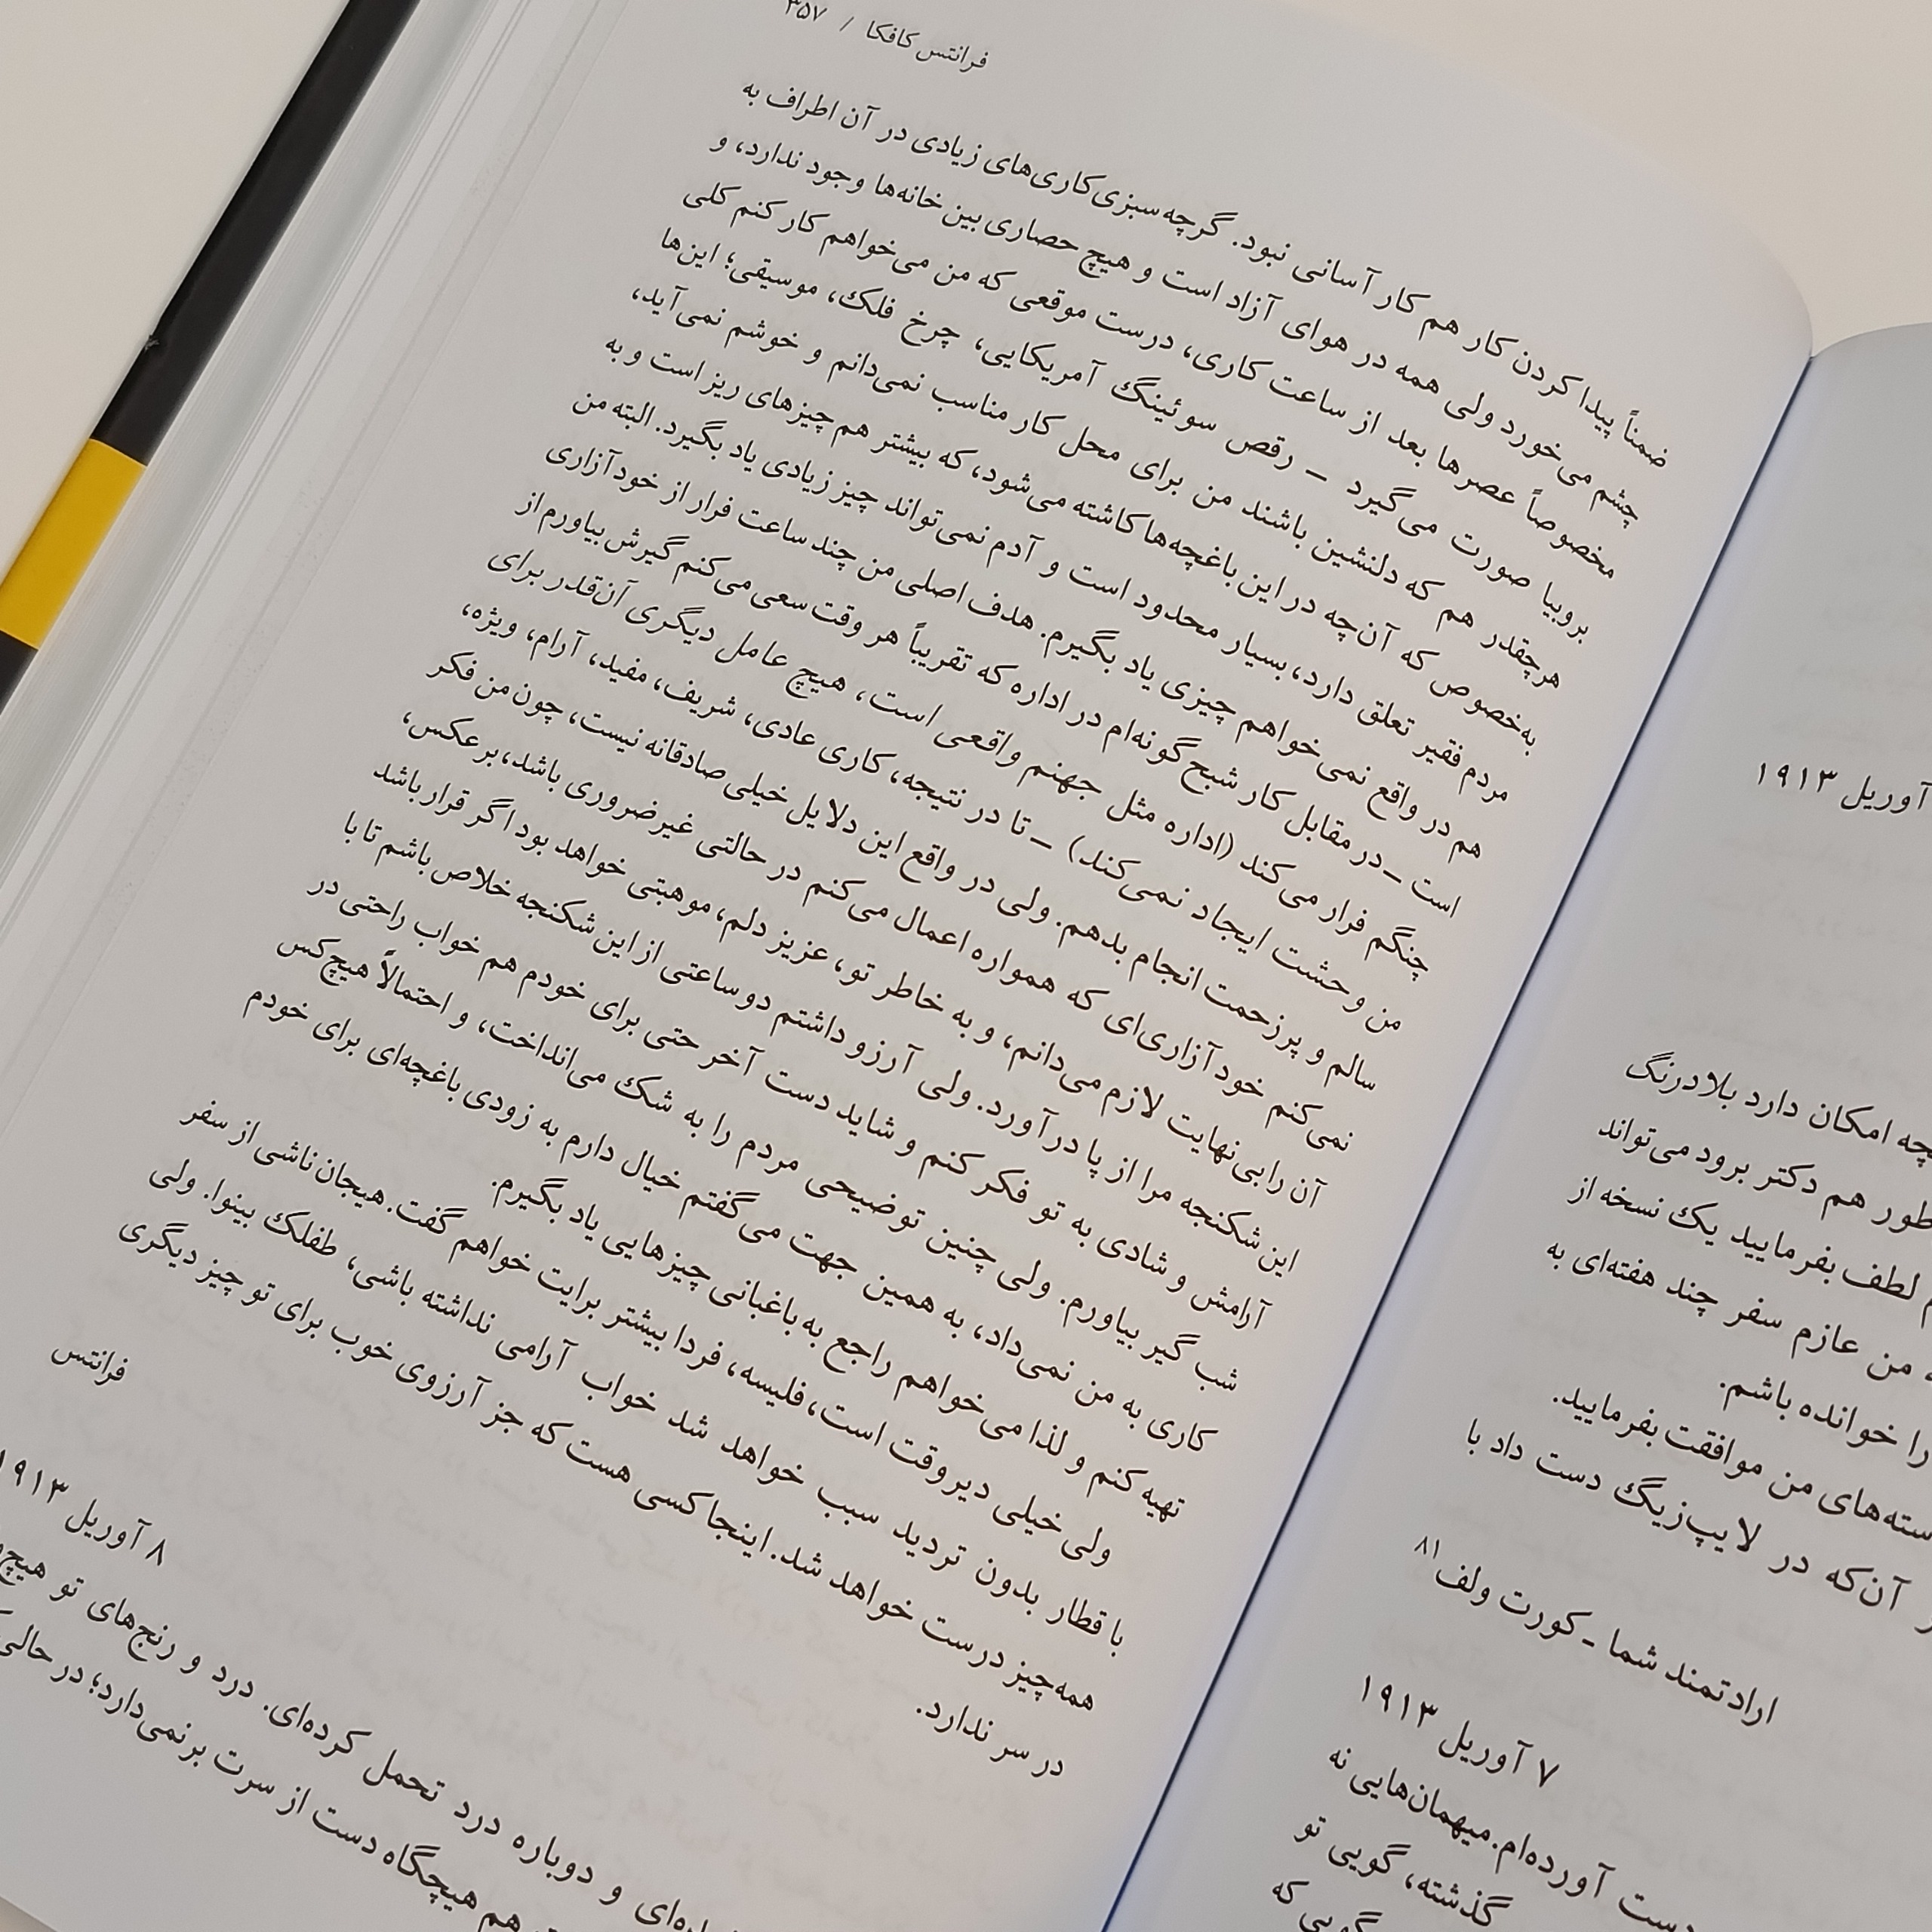 فرانتس کافکا / ۳۵۷
ضمناً پیدا کردن کار هم کار آسانی نبود. گرچه سبزی‌کاری‌های زیادی در آن اطراف به
چشم می‌خورد ولی همه در هوای آزاد است و هیچ حصاری بین خانه‌ها وجود ندارد، و
مخصوصاً عصرها بعد از ساعت کاری، درست موقعی که من می‌خواهم کار کنم کلی
بروبیا صورت می‌گیرد – رقص سوئینگ آمریکایی، چرخ فلک، موسیقی؛ این‌ها
هرچقدر هم که دلنشین باشند من برای محل کار مناسب نمی‌دانم و خوشم نمی‌آید،
به‌خصوص که آن‌چه در این باغچه‌ها کاشته می‌شود، که بیشتر هم چیزهای ریز است و به
مردم فقیر تعلق دارد، بسیار محدود است و آدم نمی‌تواند چیز زیادی یاد بگیرد. البته من
هم در واقع نمی‌خواهم چیزی یاد بگیرم. هدف اصلی من چند ساعت فرار از خودآزاری
است – در مقابل کار شبح‌گونه‌ام در اداره که تقریباً هر وقت سعی می‌کنم گیرش بیاورم از
چنگم فرار می‌کند (اداره مثل جهنم واقعی است، هیچ عامل دیگری آن‌قدر برای
من وحشت ایجاد نمی‌کند) – تا در نتیجه، کاری عادی، شریف، مفید، آرام، ویژه،
سالم و پرزحمت انجام بدهم. ولی در واقع این دلایل خیلی صادقانه نیست، چون من فکر
نمی‌کنم خودآزاری‌ای که همواره اعمال می‌کنم در حالتی غیرضروری باشد، برعکس،
آن را بی‌نهایت لازم می‌دانم، و به خاطر تو، عزیز دلم، موهبتی خواهد بود اگر قرار باشد
این شکنجه مرا از پا درآورد. ولی آرزو داشتم دو ساعتی از این شکنجه خلاص باشم تا با
آرامش و شادی به تو فکر کنم و شاید دست آخر حتی برای خودم هم خواب راحتی در
شب گیر بیاورم. ولی چنین توضیحی مردم را به شک می‌انداخت، و احتمالاً هیچ‌کس
کاری به من نمی‌داد، به همین جهت می‌گفتم خیال دارم به زودی باغچه‌ای برای خودم
تهیه کنم و لذا می‌خواهم راجع به باغبانی چیزهایی یاد بگیرم.
ولی خیلی دیروقت است، فلیسه، فردا بیشتر برایت خواهم گفت. هیجان ناشی از سفر
با قطار بدون تردید سبب خواهد شد خواب آرامی نداشته باشی، طفلک بینوا. ولی
همه‌چیز درست خواهد شد. اینجا کسی هست که جز آرزوی خوب برای تو چیز دیگری
در سر ندارد.
فرانتس
۸ آوریل ۱۹۱۳
و دوباره درد تحمل کرده‌ای. درد و رنج‌های تو
هم هیچگاه دست از سرت برنمی‌دارد؛ در حالی
آوریل ۱۹۱۳
امکان دارد بلادرنگ
هم دکتر برود می‌تواند
لطف بفرمایید یک نسخه از
من عازم سفر چند هفته‌ای به
را خوانده باشم.
من موافقت بفرمایید.
آن‌که در لایپ‌زیگ دست داد با
ارادتمند شما - کورت ولف۸۱
۷ آوریل ۱۹۱۳
آورده‌ام. میهمان‌هایی نه
گذشته، گویی تو
که